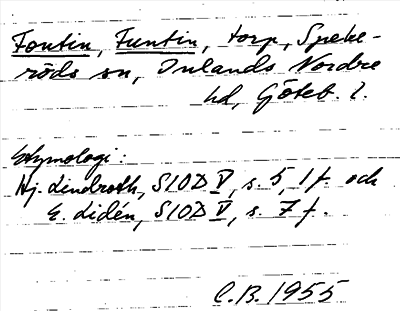 Fontin, Funtin, torp, Speke-
röds sn, Inlands Nordre
hd, Göteb. l.
Etymologi:
Hj. Lindroth, SIOD V, s. 5, 1 f. och
E. Lidén, SIOD V, s. 7 f.
C.B. 1955